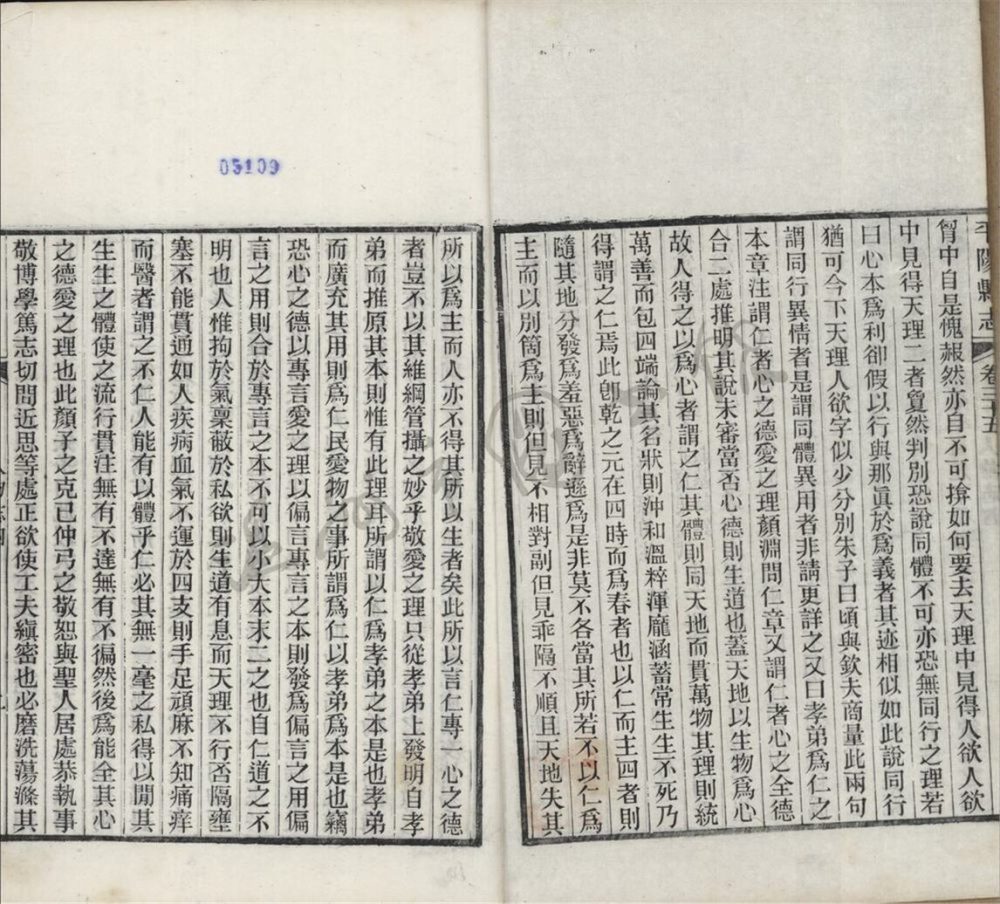 平陽縣志 卷三十五
胷中自是愧赧然亦自不可揜如何要去天理中見得人欲人欲
中見得天理二者夐然判別恐說同體不可亦恐無同行之理若
曰心本爲利卻假以行與那眞於爲義者其迹相似如此說同行
猶可今下天理人欲字似少分別朱子曰頃與欽夫商量此兩句
謂同行異情者是謂同體異用者非請更詳之又曰孝弟爲仁之
本章注謂仁者心之德愛之理顏淵問仁章又謂仁者心之全德
合二處推明其說未審當否心德則生道也蓋天地以生物爲心
故人得之以爲心者謂之仁其體則同天地而貫萬物其理則統
萬善而包四端論其名狀則沖和溫粹渾龐涵蓄常生生不死乃
得謂之仁焉此卽乾之元在四時而爲春者也以仁而主四者則
隨其地分發爲羞惡爲辭遜爲是非莫不各當其所若不以仁爲
主而以別箇爲主則但見不相對副但見乖隔不順且天地失其
05109
所以爲主而人亦不得其所以生者矣此所以言仁專一心之德
者豈不以其維綱管攝之妙乎敬愛之理只從孝弟上發明自孝
弟而推原其本則惟有此理耳所謂以仁爲孝弟之本是也孝弟
而廣充其用則爲仁民愛物之事所謂爲仁以孝弟爲本是也竊
恐心之德以專言愛之理以偏言專言之本則發爲偏言之用偏
言之用則合於專言之本不可以小大本末二之也自仁道之不
明也人惟拘於氣稟蔽於私欲則生道有息而天理不行否隔壅
塞不能貫通如人疾病血氣不運於四支則手足頑麻不知痛痒
而醫者謂之不仁人能有以體乎仁必其無一毫之私得以閒其
生生之體使之流行貫注無有不達無有不徧然後爲能全其心
之德愛之理也此顏子之克己仲弓之敬恕與聖人居處恭執事
敬博學篤志切問近思等處正欲使工夫縝密也必磨洗蕩滌其